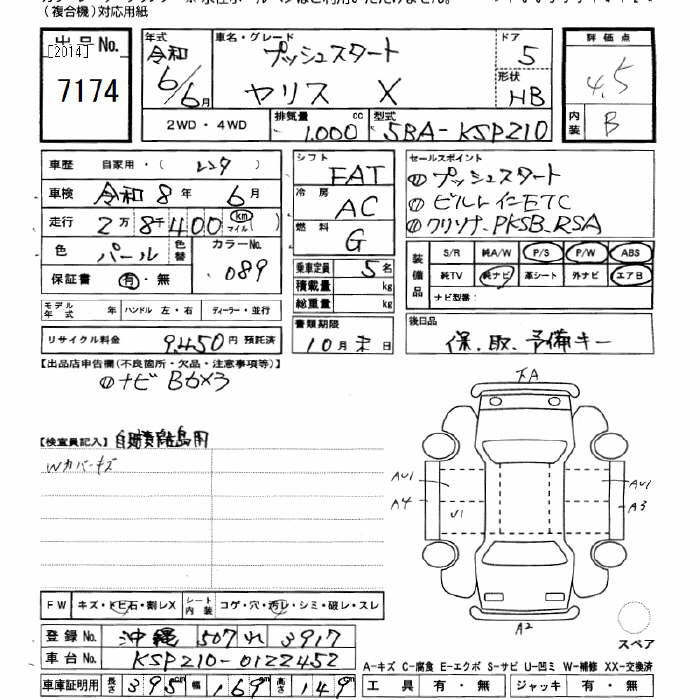 (複合機)対応用紙
出品No.
[2014]
7174
年式
令和
6/6月
車名・グレード
プッシュスタート
ヤリス X
ドア
5
形状
HB
評価点
4.5
内装
B
2WD・4WD
排気量
1.000 cc
型式
5BA-KSP210
車歴 自家用・( レンタ )
車検 令和 8年 6月
走行 2万8千400 km マイル( )
色 パール 色替
カラーNo. 089
保証書 有・無
モデル年式 年 ハンドル 左・右 ディーラー・並行
リサイクル料金 9.450円 預託済
シフト
FAT
冷房
AC
燃料
G
乗車定員 5名
積載量 kg
総重量 kg
書類期限
10月末日
セールスポイント
① プッシュスタート
② ビルトインETC
③ クリソナ.PKSB.RSA
装備品
S/R 純A/W P/S P/W ABS
純TV 純ナビ 革シート 外ナビ エアB
ナビ型番:
後日品
保.取.予備キー
【出品店申告欄(不良箇所・欠品・注意事項等)】
① ナビ Bカメラ
【検査員記入】 自賠責離島用
Wカバーキズ
AU1
A4
U1
AU1
A3
A2
スペア
FW キズ・トビ石・割レX
シート内装 コゲ・穴・汚レ・シミ・破レ・スレ
登録No. 沖縄 507 れ 3917
車台No. KSP210-0122452
車庫証明用 長さ 395cm 幅 169cm 高さ 149cm
A-キズ C-腐食 E-エクボ S-サビ U-凹ミ W-補修 XX-交換済
工具 有・無 ジャッキ 有・無